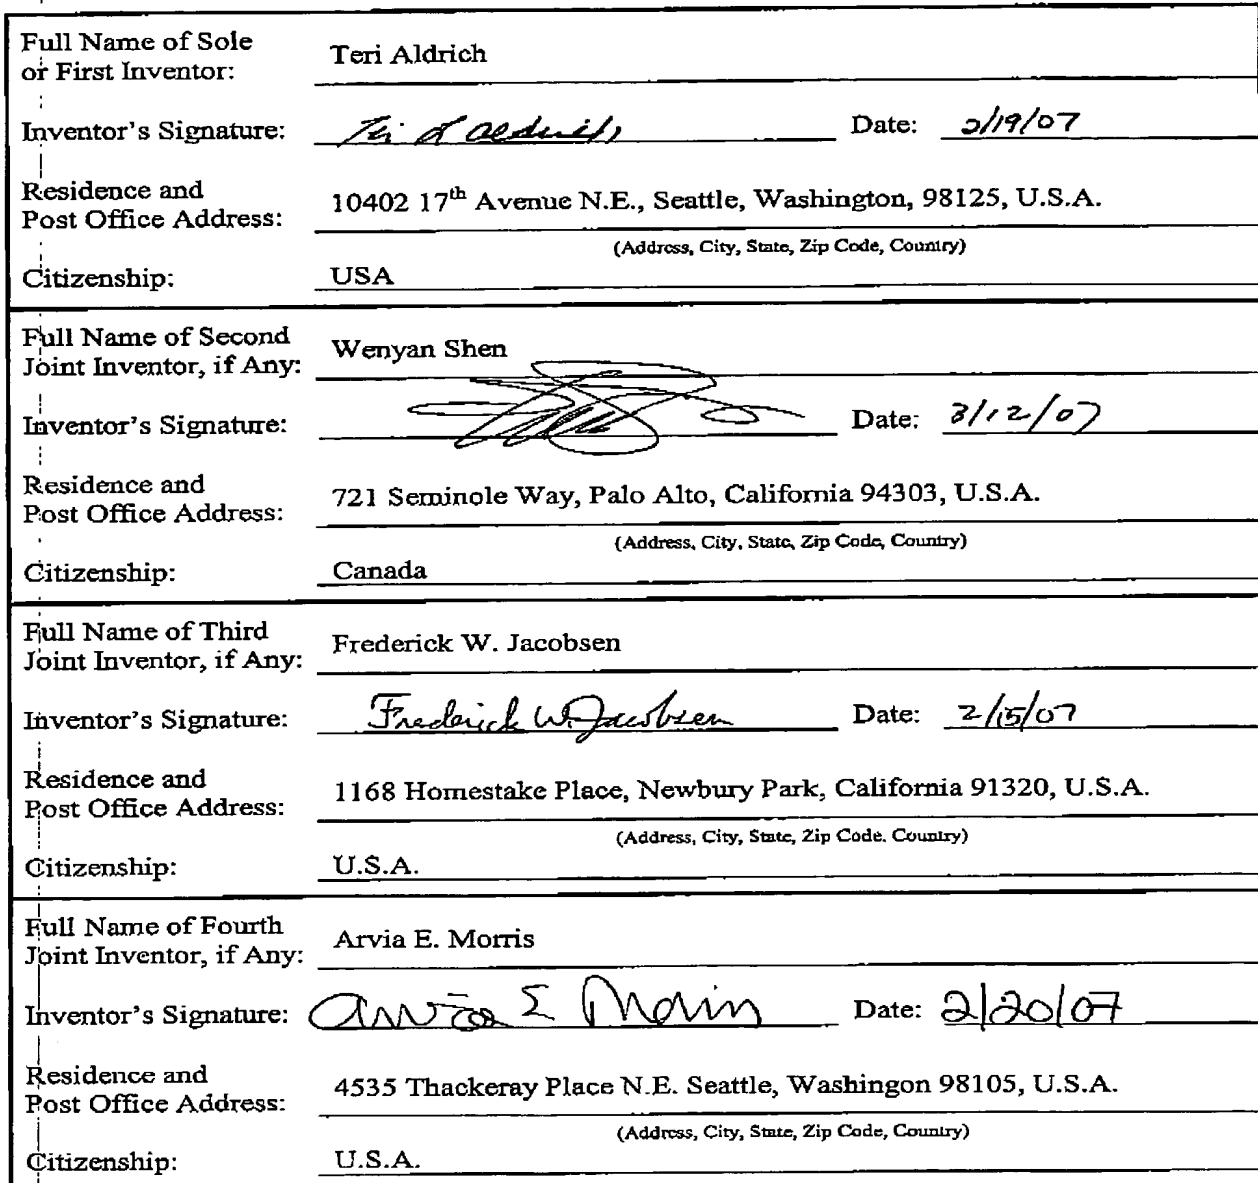 Full Name of Sole
or First Inventor: Teri Aldrich
Inventor's Signature: Date: 2/19/07
Residence and
Post Office Address: 10402 17th Avenue N.E., Seattle, Washington, 98125, U.S.A.
(Address, City, State, Zip Code, Country)
Citizenship: USA
Full Name of Second
Joint Inventor, if Any: Wenyan Shen
Inventor's Signature: Date: 3/12/07
Residence and
Post Office Address: 721 Seminole Way, Palo Alto, California 94303, U.S.A.
(Address, City, State, Zip Code, Country)
Citizenship: Canada
Full Name of Third
Joint Inventor, if Any: Frederick W. Jacobsen
Inventor's Signature: Frederick W. Jacobsen Date: 2/15/07
Residence and
Post Office Address: 1168 Homestake Place, Newbury Park, California 91320, U.S.A.
(Address, City, State, Zip Code, Country)
Citizenship: U.S.A.
Full Name of Fourth
Joint Inventor, if Any: Arvia E. Morris
Inventor's Signature: Arvia E Morris Date: 2/20/07
Residence and
Post Office Address: 4535 Thackeray Place N.E. Seattle, Washingon 98105, U.S.A.
(Address, City, State, Zip Code, Country)
Citizenship: U.S.A.